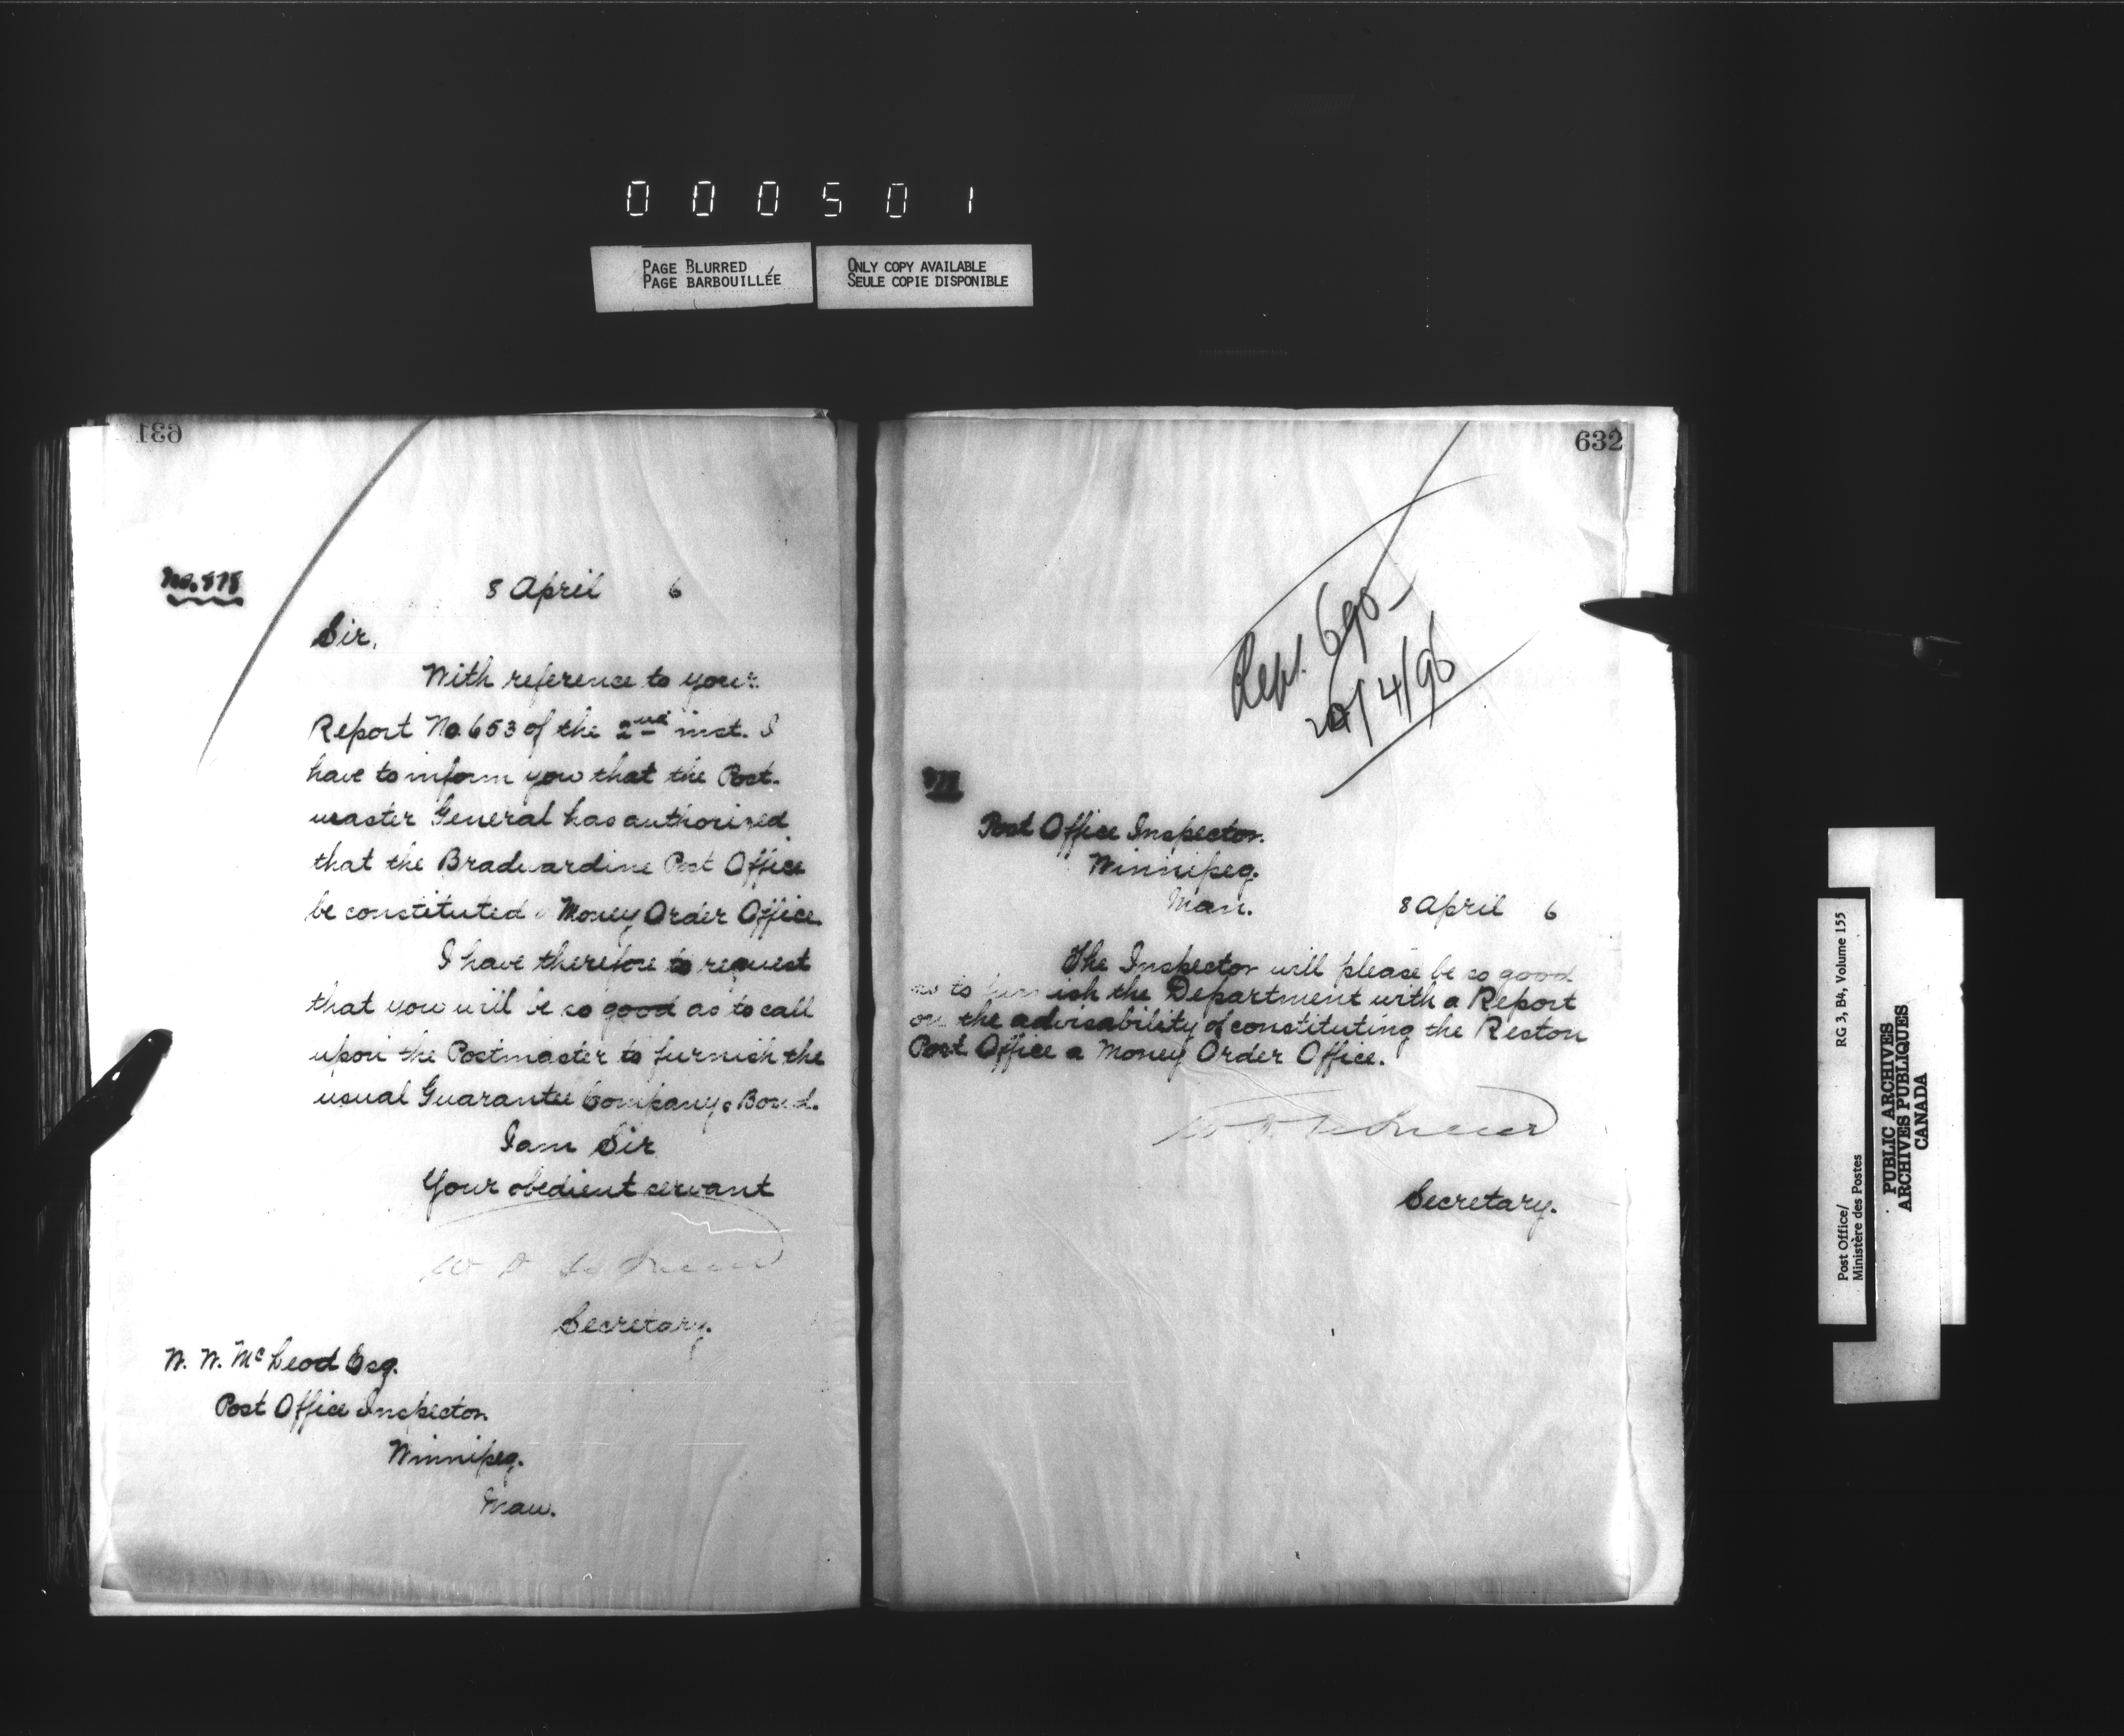 000501
PAGE BLURRED
PAGE BARBOUILLÉE
ONLY COPY AVAILABLE
SEULE COPIE DISPONIBLE
631
No. 878
8 April 6
Sir,
With reference to your
Report No. 653 of the 2nd inst. I
have to inform you that the Post-
master General has authorized
that the Bradwardine Post Office
be constituted a Money Order Office.
I have therefore to request
that you will be so good as to call
upon the Postmaster to furnish the
usual Guarantee Company's Bond.
I am Sir
Your obedient servant
Secretary.
W. W. McLeod Esq.
Post Office Inspector
Winnipeg.
Man.
632
Rept. 690
20/4/96
Post Office Inspector.
Winnipeg.
Man.
8 April 6
The Inspector will please be so good
as to furnish the Department with a Report
on the advisability of constituting the Reston
Post Office a Money Order Office.
Secretary.
Post Office/
Ministère des Postes
RG 3, B4, Volume 155
PUBLIC ARCHIVES
ARCHIVES PUBLIQUES
CANADA